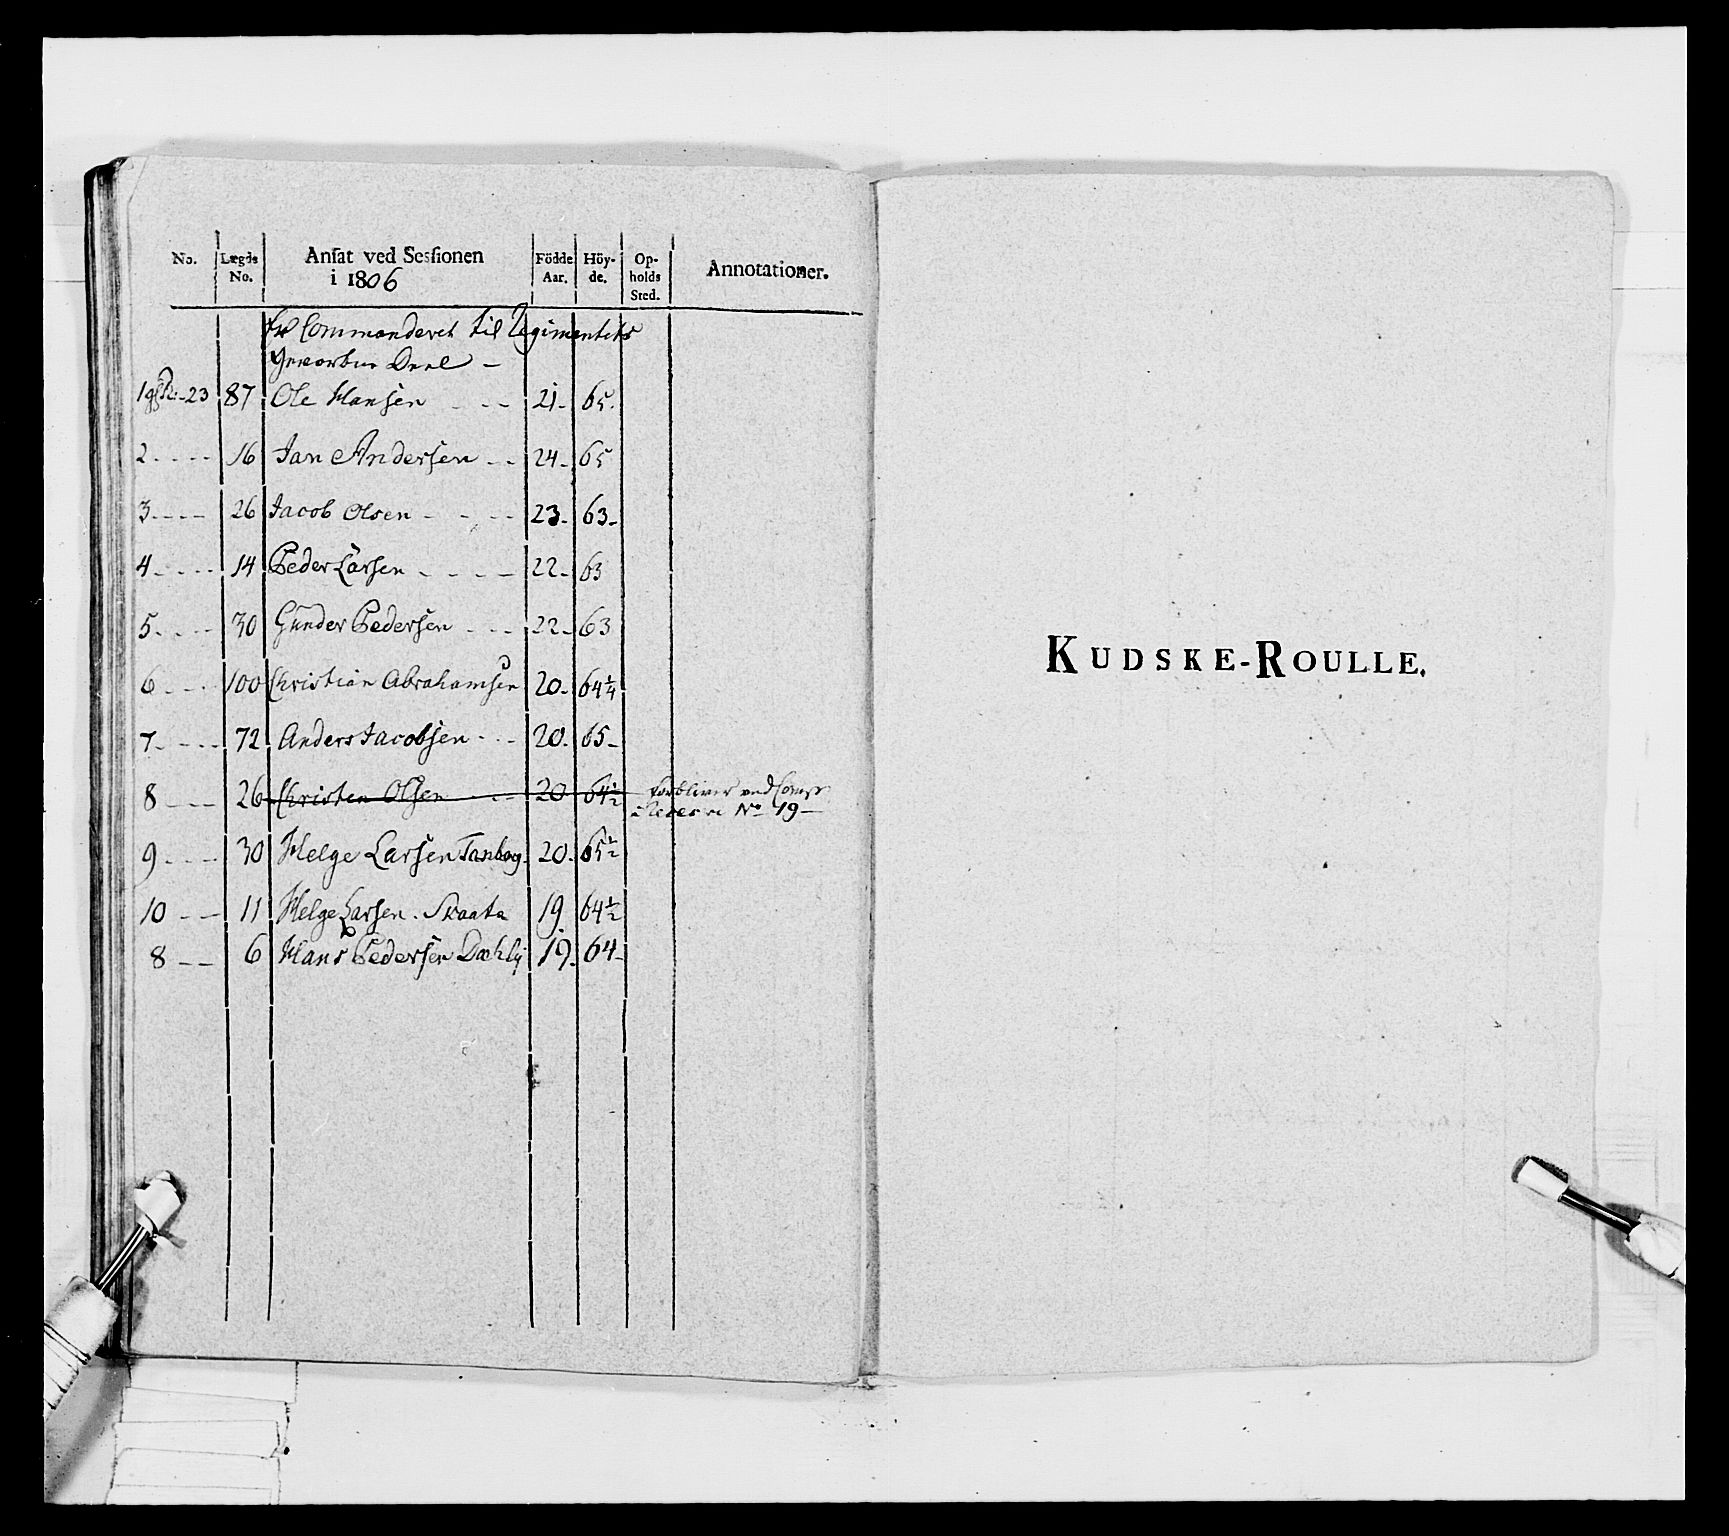 No. Lægds No. Ansat ved Sessionen i 1806 Födde Aar. Höyde. Opholds Sted. Annotationer.
Er Commanderet til Regimentets
Gevorbne Deel –
23 87 Ole Hansen - - - 21- 65.
2 - - - - 16 Jan Andersen - - 24- 65
3 - - - - 26 Jacob Olsen - - - - 23- 63-
4 - - - - 14 Peder Larsen - - - - 22- 63
5 - - - - 30 Gunder Pedersen - - - 22- 63
6 - - - - 100 Christian Abrahamsen 20- 64¼
7 - - - - 72 Anders Jacobsen - - - 20- 65-
8 - - - 26 Christen Olsen - - 20 64½ Forbliver ved Comp:
No 19 –
9 - - - - 30 Helge Larsen 20- 65½
10 - - 11 Helge Larsen. 19 64½
8 - - 6 Hans Pedersen Dæhly 19- 64-
KUDSKE-ROULLE.